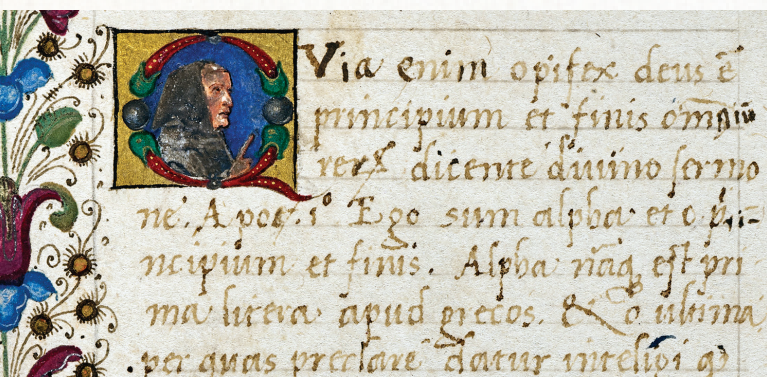 QVia enim opifex deus ē
principium et finis om̄niū
rerꝝ dicente divino sermo
ne. Apoc. i° Ego sum alpha et o pri=
ncipium et finis. Alpha nāq̃ est pri
ma litera apud grecos. & o ultima
per quas preclare datur inteligi q̃